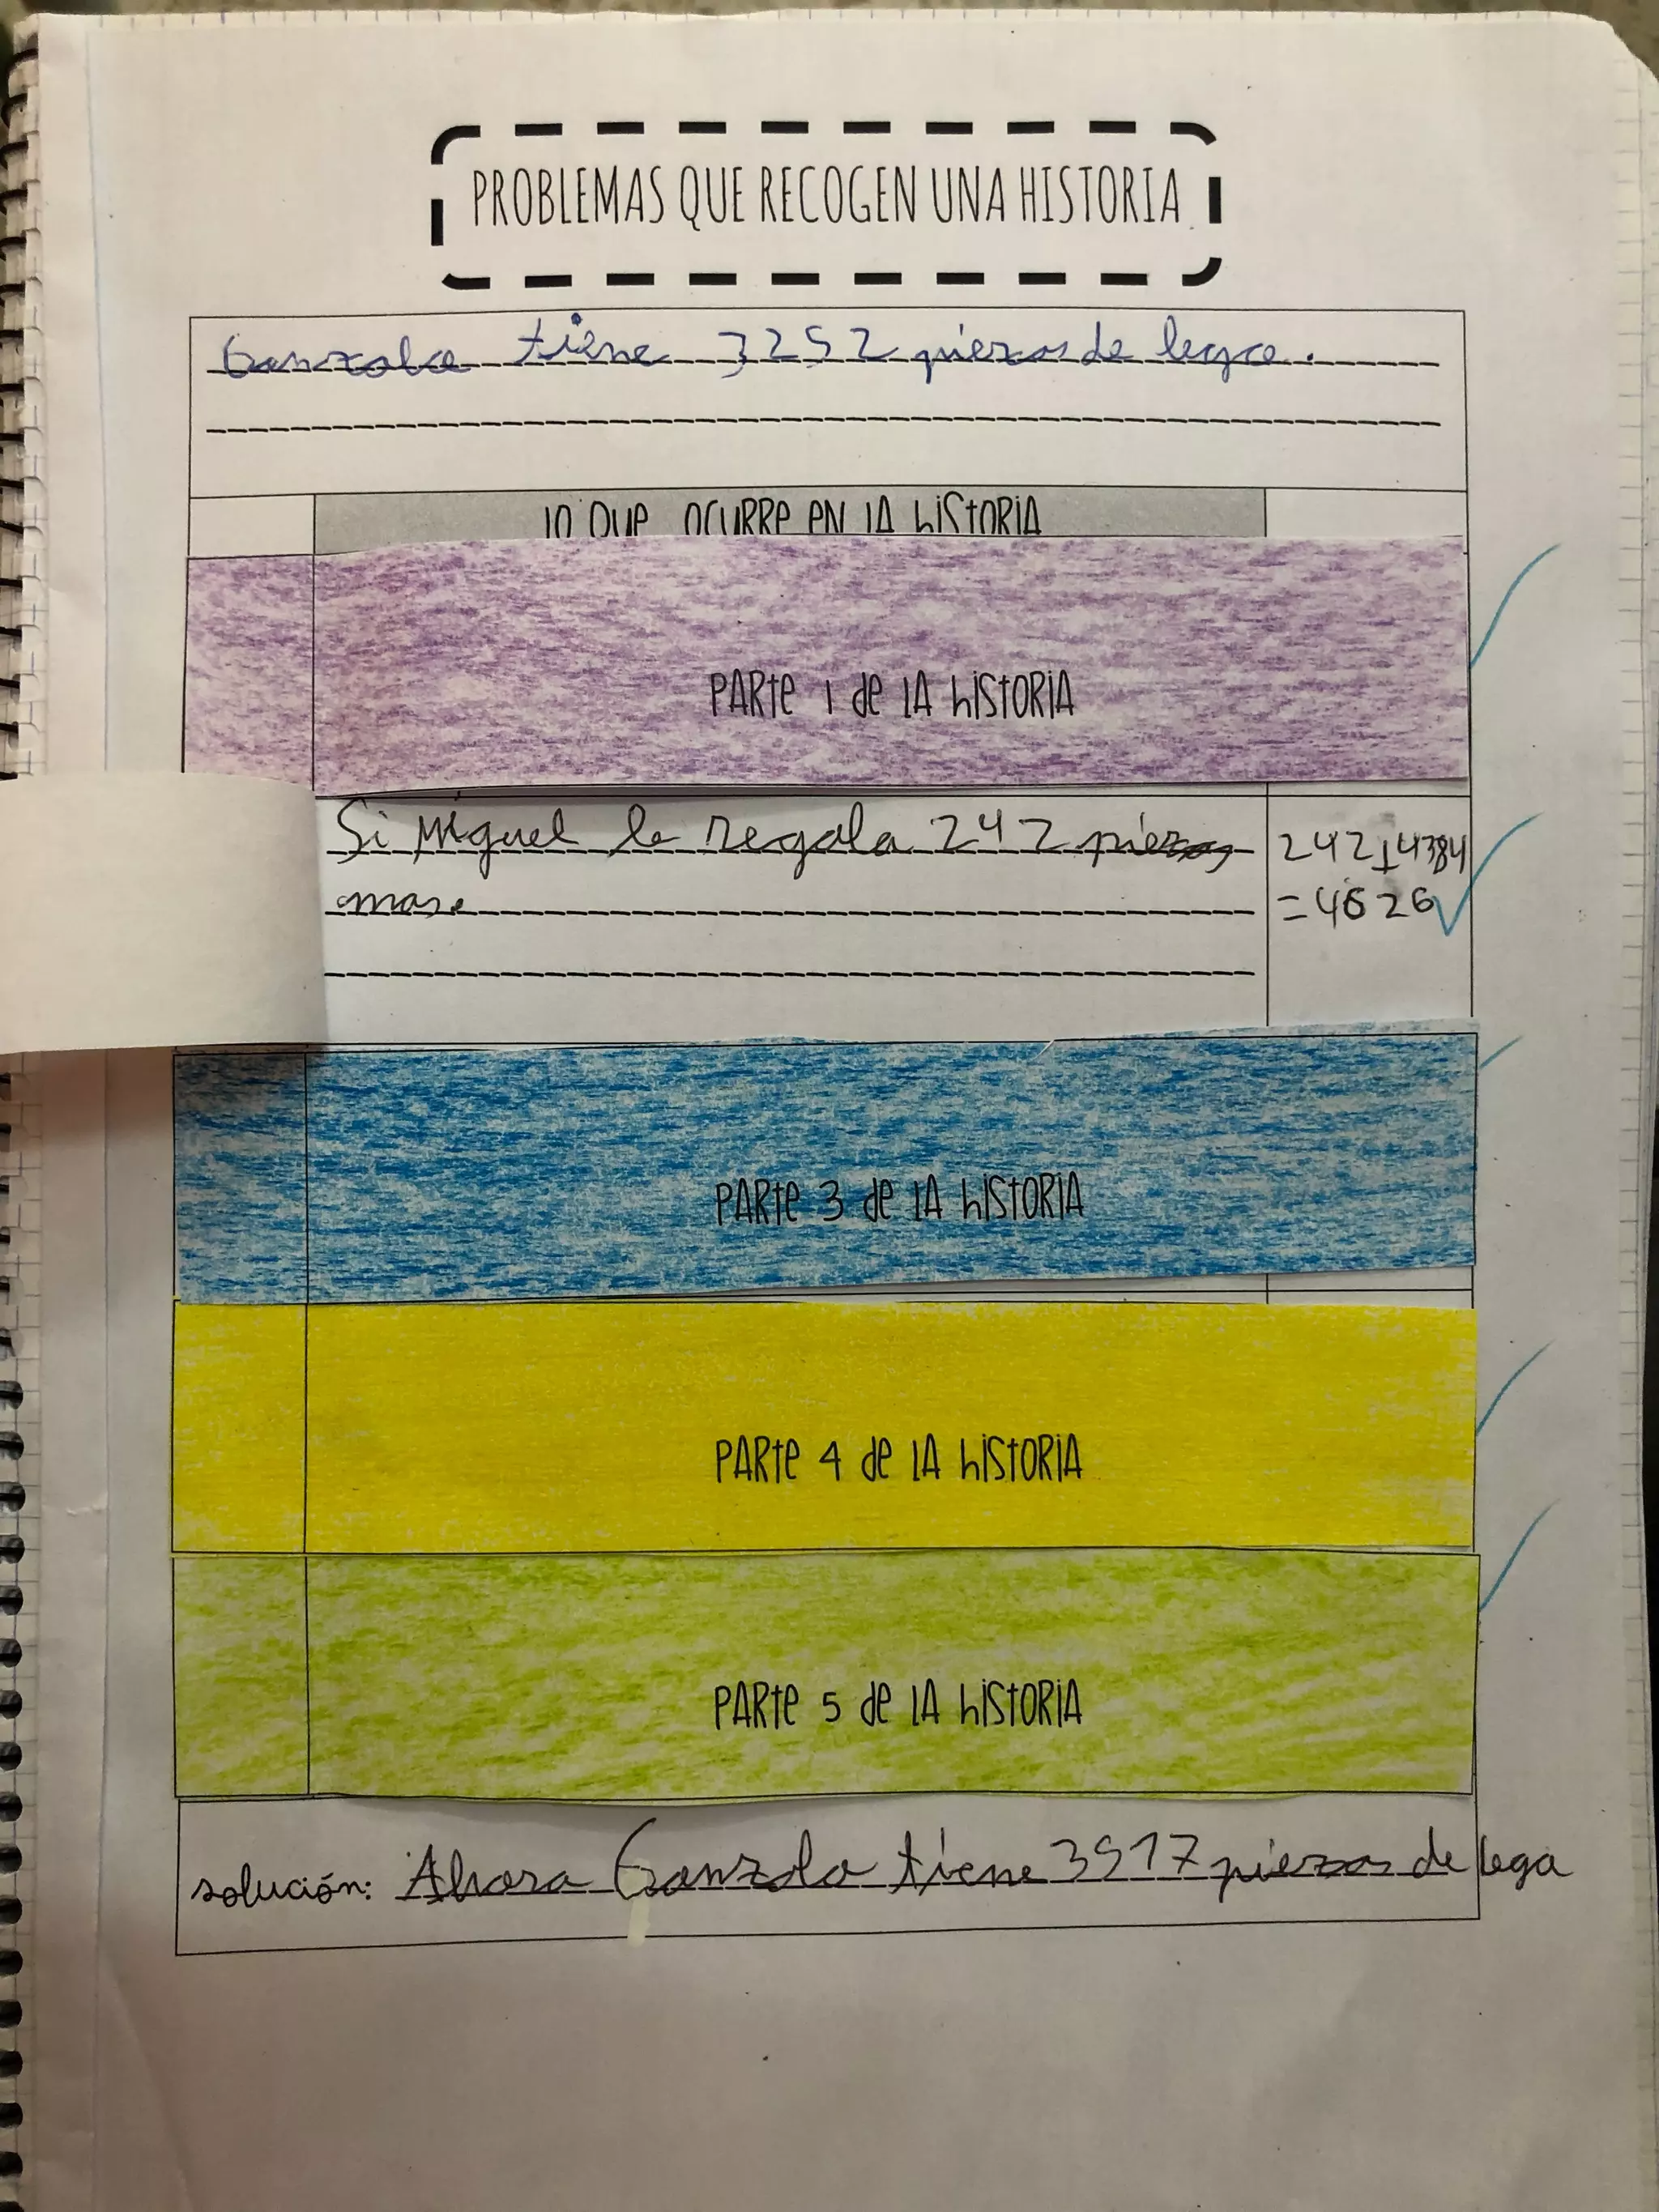 PROBLEMAS QUE RECOGEN UNA HISTORIA
Gonzolo tiene 3252 piezas de lego.
LO QUE OCURRE EN LA HISTORIA
PARTE 1 DE LA HISTORIA
Si Miguel le regala 242 piezas
mas.
242+4384
=4626
PARTE 3 DE LA HISTORIA
PARTE 4 DE LA HISTORIA
PARTE 5 DE LA HISTORIA
solución: Ahora Gonzolo tiene 3517 piezas de lego